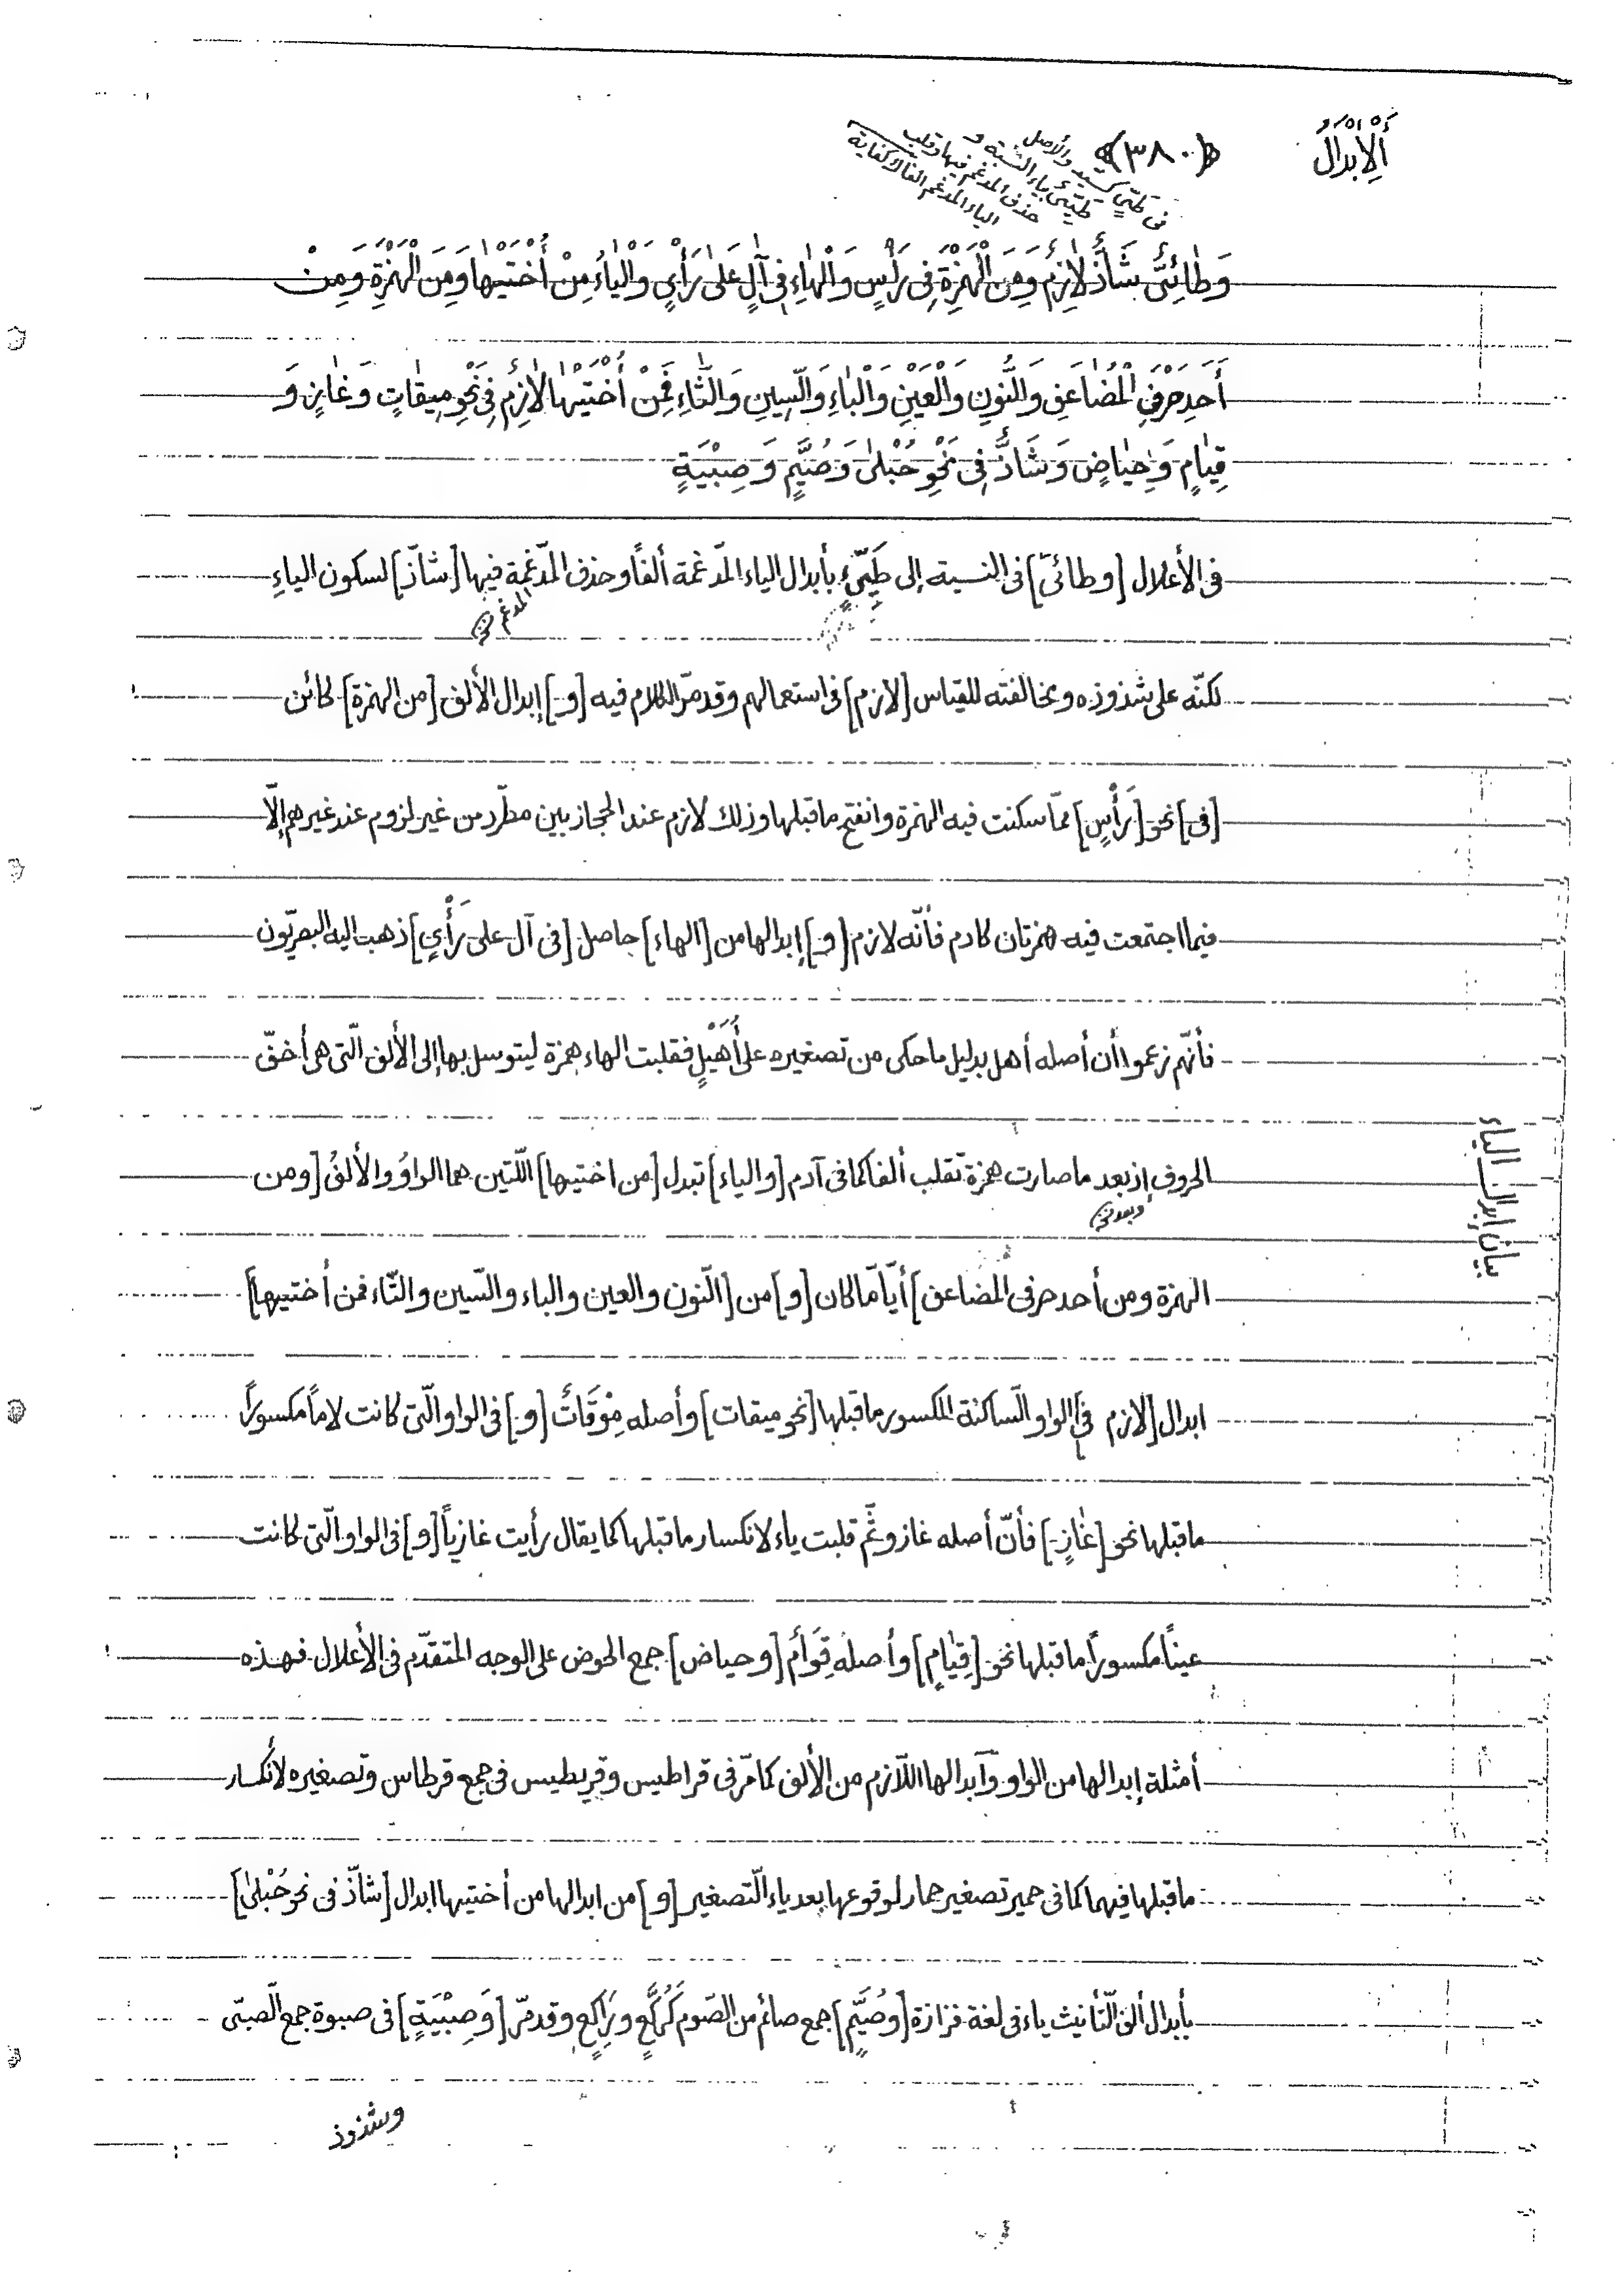 أَلْأِبْدَالُ
﴿٣٨٠﴾
فى طَيّئٍ كسيّد والأصل
طَيّئىّ بياء النسبة و
حذف المدغم فيها وقلب
الياء المدغم الفا لا كفاية
وَطٰائِىٌّ شَاذٌّ لٰازِمٌ وَمِنَ الْهَمْزَةِ فِى رَأْسٍ وَالْهٰاءِ فِى آلٍ عَلىٰ رَأْيٍ وَالْيٰاءُ مِنْ أُخْتَيْهٰا وَمِنَ الْهَمْزَةِ وَمِنْ
أَحَدِ حَرْفَىِ الْمُضٰاعَفِ وَالنُّونِ وَالْعَيْنِ وَالْبٰاءِ وَالسّينِ وَالثّٰاءِ فَمِنْ أُخْتَيْهٰا لٰازِمٌ فِى نَحْوِ مِيقٰاتٍ وَغٰازٍ وَ
قِيٰامٍ وَحِيٰاضٍ وَشَاذٌّ فِى نَحْوِ حُبْلىٰ وَصُيَّمٍ وَصِبْيَةٍ
فى الأعلال [وطائىّ] فى النسبة إلى طَيّئٍ بأبدال الياء المدّغمة ألفًا وحذف المدّغمة فيها [شاذّ] لسكون الياءِ
المدغم خ
لكنّه على شذوذه ومخالفته للقياس [لازم] فى استعمالهم وقد مرّ الكلام فيه [و] إبدال الألف [من الهمزة] كائن
[فى] نحو [رَأْسٍ] ممّا سكنت فيه الهمزة وانفتح ما قبلها وذلك لازم عند الحجازيين مطّرد من غير لزوم عند غيرهم إلّا
فيما اجتمعت فيه همزتان كادم فأنّه لازم [و] إبدالها من [الهاء] حاصل [فى آل على رَأْيٍ] ذهب اليه البصريّون
فأنّهم زعموا أن أصله أهل بدليل ما حكى من تصغيره على أُهَيْلٍ فقلبت الهاء همزة ليتوسل بها إلى الألف الّتى هى أخفّ
الحروف إذ بعد ما صارت همزة تقلب ألفا كما فى آدم [والياء] تبدل [من اختيها] اللّتين هما الواوُ والألفُ [ومن
وبعد خ
بيان إبدال الياء
الهمزة ومن أحد حرفى المضاعف] أيّاً مّا كان [و] من [النّون والعين والباء والسّين والثّاء فمن أختيها]
ابدال [لازم فى] الواو السّاكنة المكسور ما قبلها [نحو ميقات] وأصله مِوْقَاتٌ [و] فى الواو الّتى كانت لاماً مكسوراً
ما قبلها نحو [غٰازٍ] فأنّ أصله غازو ثمّ قلبت ياء لانكسار ما قبلها كما يقال رأيت غازياً [و] فى الواو الّتى كانت
عيناً مكسوراً ما قبلها نحو [قِيٰامٍ] وأصله قِوَامٌ [وحياض] جمع الحوض على الوجه المتقدّم فى الأعلال فهذه
أمثلة إبدالها من الواو وآبدالها اللّازم من الألف كما مرّ فى قراطيس وقريطيس فى جمع قرطاس وتصغيره لأنكسار
ما قبلها فيهما كما فى حمير تصغير حمار لوقوعها بعد ياء التّصغير [و] من ابدالها من أختيها ابدال [شاذّ فى نحو حُبْلىٰ]
بأبدال ألف التّأنيث ياء فى لغة فزازة [وصُيَّمٍ] جمع صائم من الصّوم كَرُكَّعٍ ورَاكِعٍ وقد مرّ [وَصِبْيَةٍ] فى صبوة جمع الصّبّى
وشذوذ